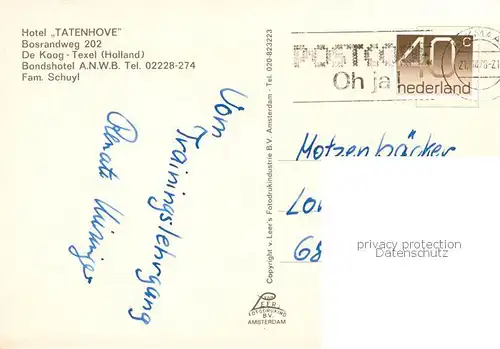 Hotel „TATENHOVE"
Bosrandweg 202
De Koog - Texel (Holland)
Bondshotel A.N.W.B. Tel. 02228-274
Fam. Schuyl
Vom
Trainingslehrgang
Renate
Copyright v. Leer's Fotodrukindustrie B.V. Amsterdam - Tel. 020-823223
VAN
LEER
FOTODRUKIND
B.V.
AMSTERDAM
POSTCO
Oh ja
40 c
nederland
Motzenbäcker
Lo
68
privacy protection
Datenschutz